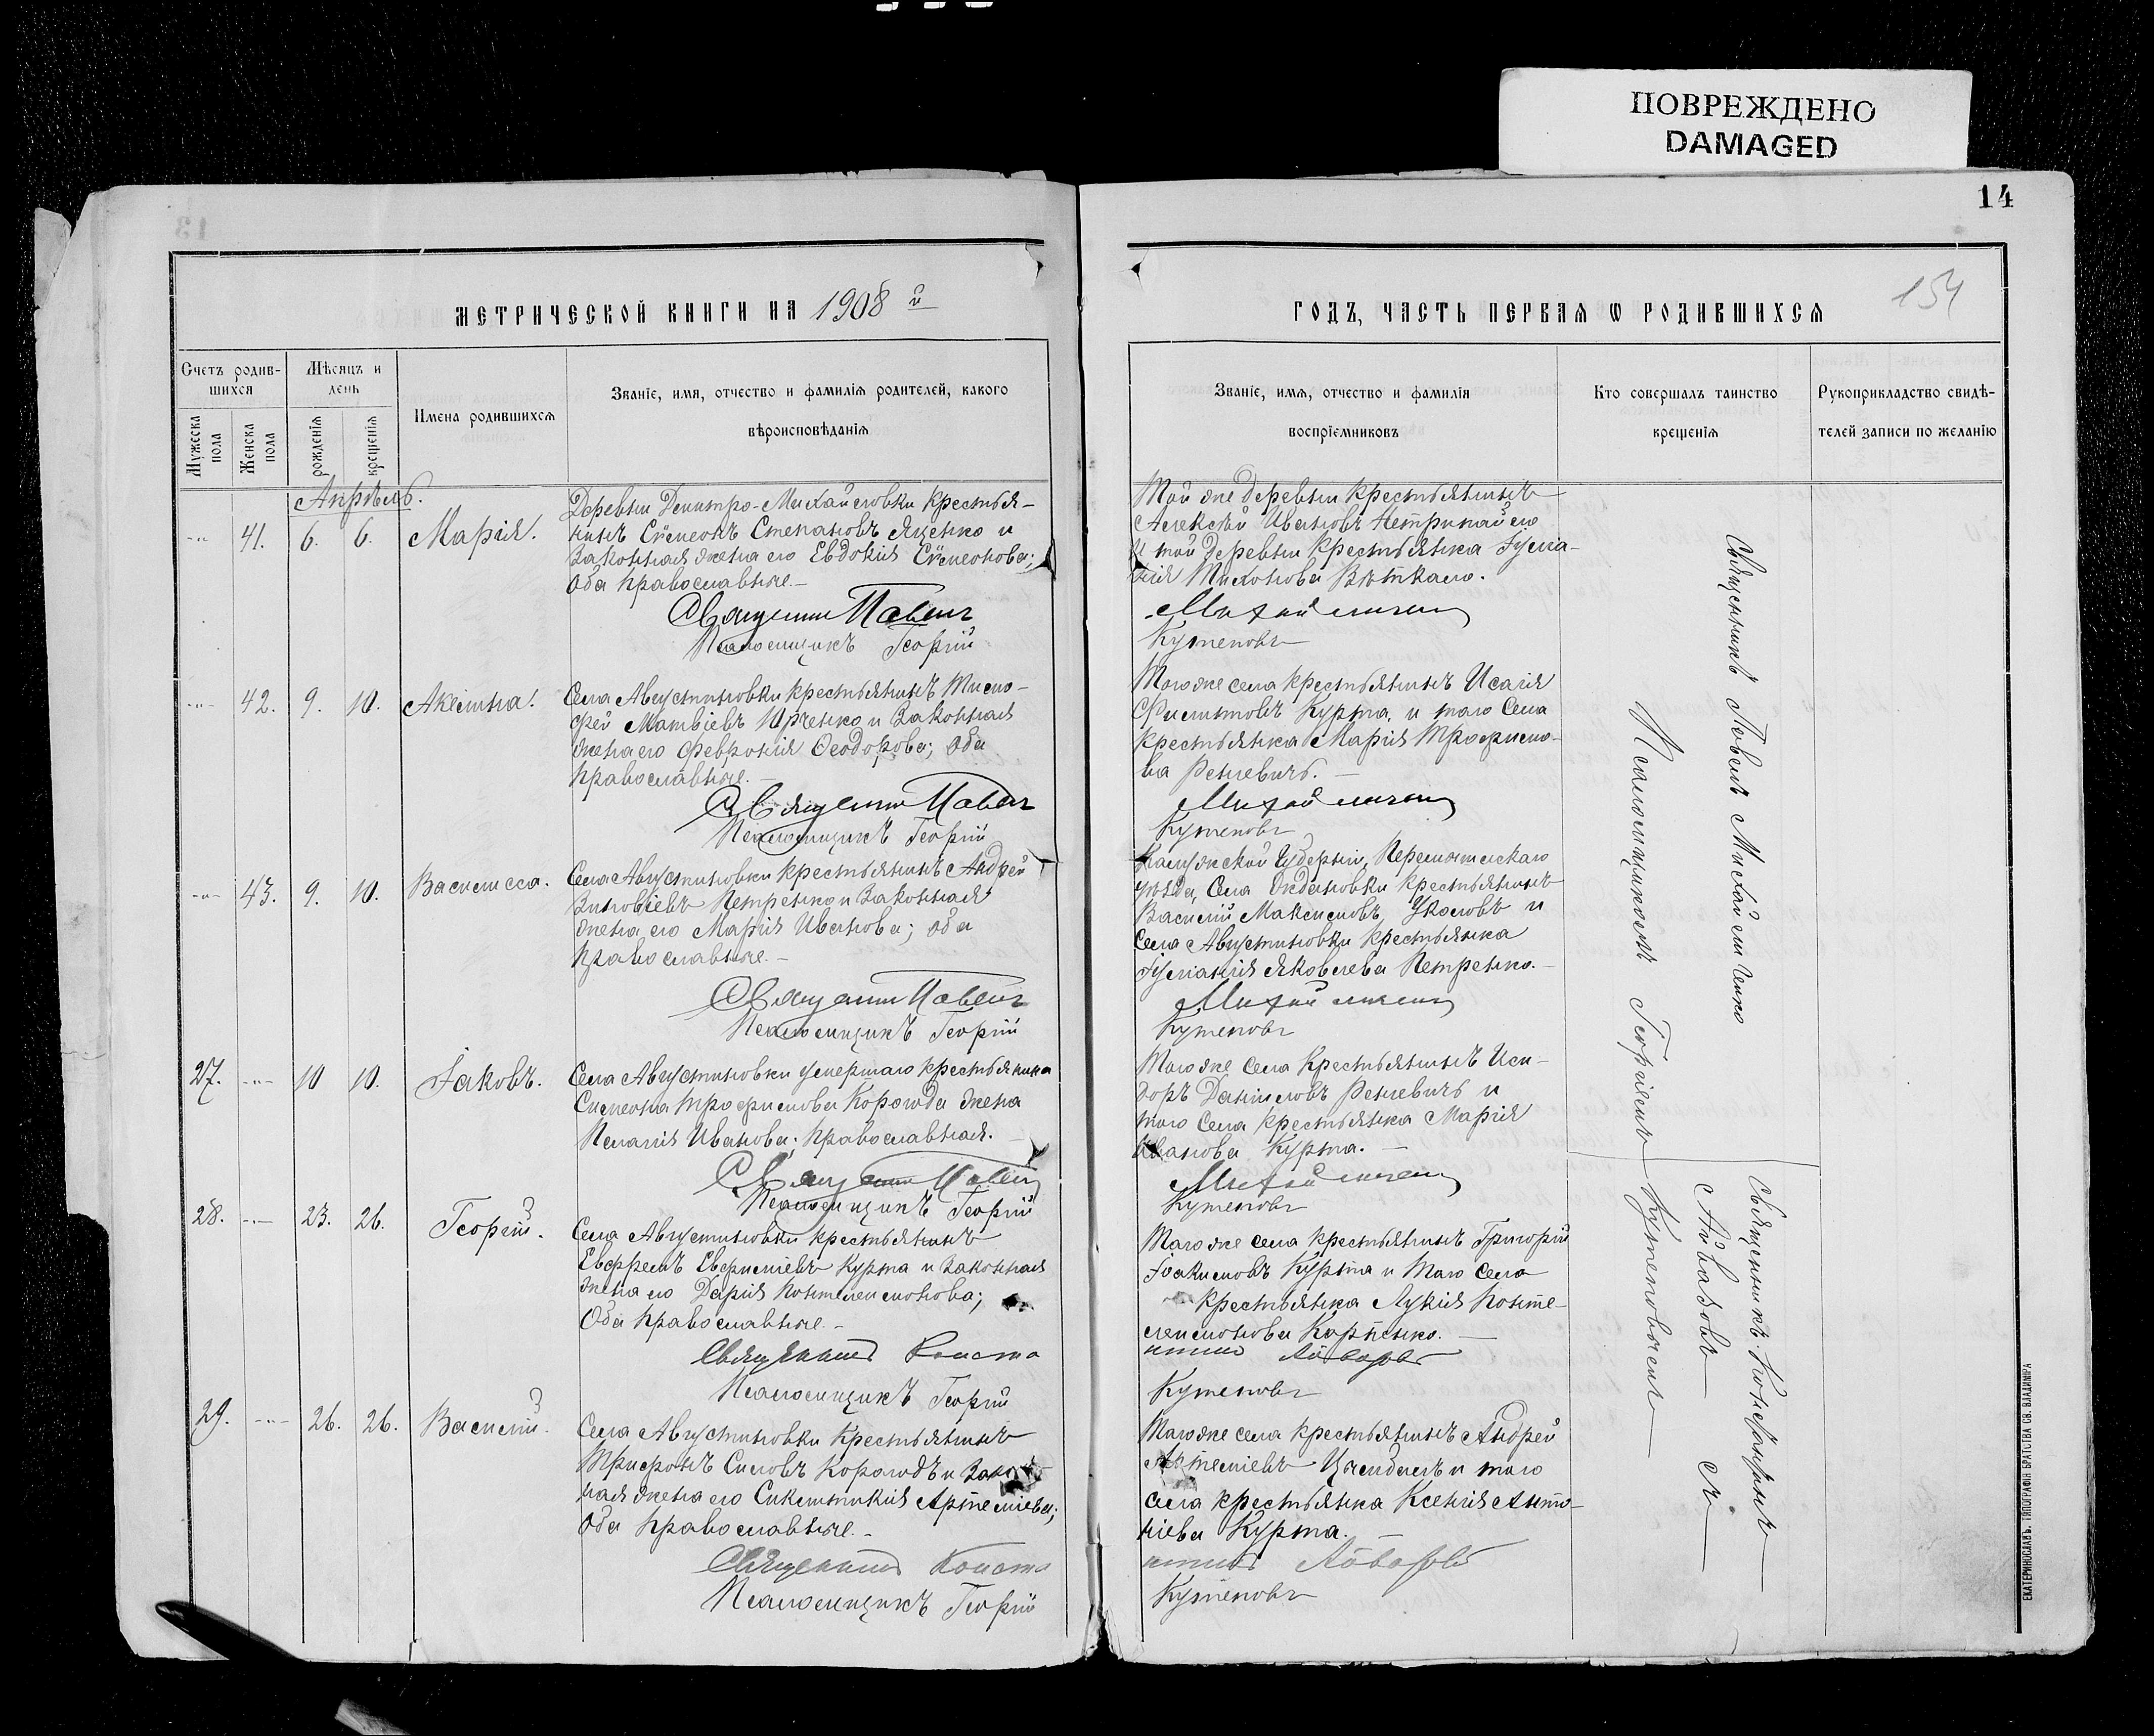 ПОВРЕЖДЕНО
DAMAGED
14
154
МЕТРИЧЕСКОЙ КНИГИ НА 1908 й
ГОДЪ, ЧАСТЬ ПЕРВАЯ Ѡ РОДИВШИХСЯ
Счетъ родив-
шихся
Мужеска
пола
Женска
пола
Мѣсяцъ и
день
рожденія
крещенія
Имена родившихся
Званіе, имя, отчество и фамилія родителей, какого
вѣроисповѣданія
Званіе, имя, отчество и фамилія
воспріемниковъ
Кто совершалъ таинство
крещенія
Рукоприкладство свидѣ-
телей записи по желанію
Апрѣль.
41. 6. 6. Марія.
Деревни Димитро-Михайловки крестья-
нинъ Сѵмеонъ Степановъ Яценко и
законная жена его Евдокія Сѵмеонова;
оба православные.
Священни Павелъ
Псаломщикъ Георгій
Той же деревни крестьянинъ
Алексѣй Ивановъ
и той деревни крестьянка Іуліа-
нія Тихонова
Михайличен
Кутеповъ
42. 9. 10. Акилина.
Села Августиновки крестьянинъ Тимо-
фей Матвіевъ Юрченко и законная
жена его Февронія Ѳеодорова; оба
православные.
Священни Павелъ
Псаломщикъ Георгій
Того же села крестьянинъ Исаія
Филиповъ Курта, и того села
крестьянка Марія Трофимо-
ва Реплевичъ.
Михайличен
Кутеповъ
43. 9. 10. Василисса.
Села Августиновки крестьянинъ Андрей
Зиновіевъ Петренко и законная
жена его Марія Иванова; оба
православные.
Священни Павелъ
Псаломщикъ Георгій
Калужской Губерніи, Перемышльскаго
уѣзда, Села Ждановки крестьянинъ
Василій Максимовъ, Уколовъ и
Села Августиновки крестьянка
Іуліанія Яковлева Петренко.
Михайличен
Кутеповъ
27. 10 10. Іаковъ.
Села Августиновки умершаго крестьянина
Симеона Трофимова Корогода жена
Пелагія Иванова; православная.
Священни Павелъ
Псаломщикъ Георгій
Того же села крестьянинъ Иси-
доръ Даніиловъ Реплевичъ и
того села крестьянка Марія
Иванова Курта.
Михайличен
Кутеповъ
28. 23. 26. Георгій.
Села Августиновки крестьянинъ
Евфремъ Евфиміевъ Курта и законная
жена его Дарія Пантелеимонова;
Оба православные.
Священникъ Конста
Псаломщикъ Георгій
Того же села крестьянинъ Григорій
Іоакимовъ Курта и того села
крестьянка Лукія Панте-
леимонова Карпенко.
нтинъ Айвазовъ
Кутеповъ
29. 26. 26. Василій.
Села Августиновки крестьянинъ
Трифонъ Силовъ Корогодъ и закон
ная жена его Синклитикія Артеміева;
Оба православные.
Священникъ Конста
Псаломщикъ Георгій
Того же села крестьянинъ Андрей
Артеміевъ и того
села крестьянка Ксенія Анто-
ніева Курта.
нтинъ Айвазовъ
Кутеповъ
Священникъ Павелъ Михайличенко
Псаломщикомъ Георгіемъ
Кутеповымъ
Священникъ Константинъ
Айвазовъ съ
ЕКАТЕРИНОСЛАВЪ. ТИПОГРАФІЯ БРАТСТВА СВ. ВЛАДИМІРА